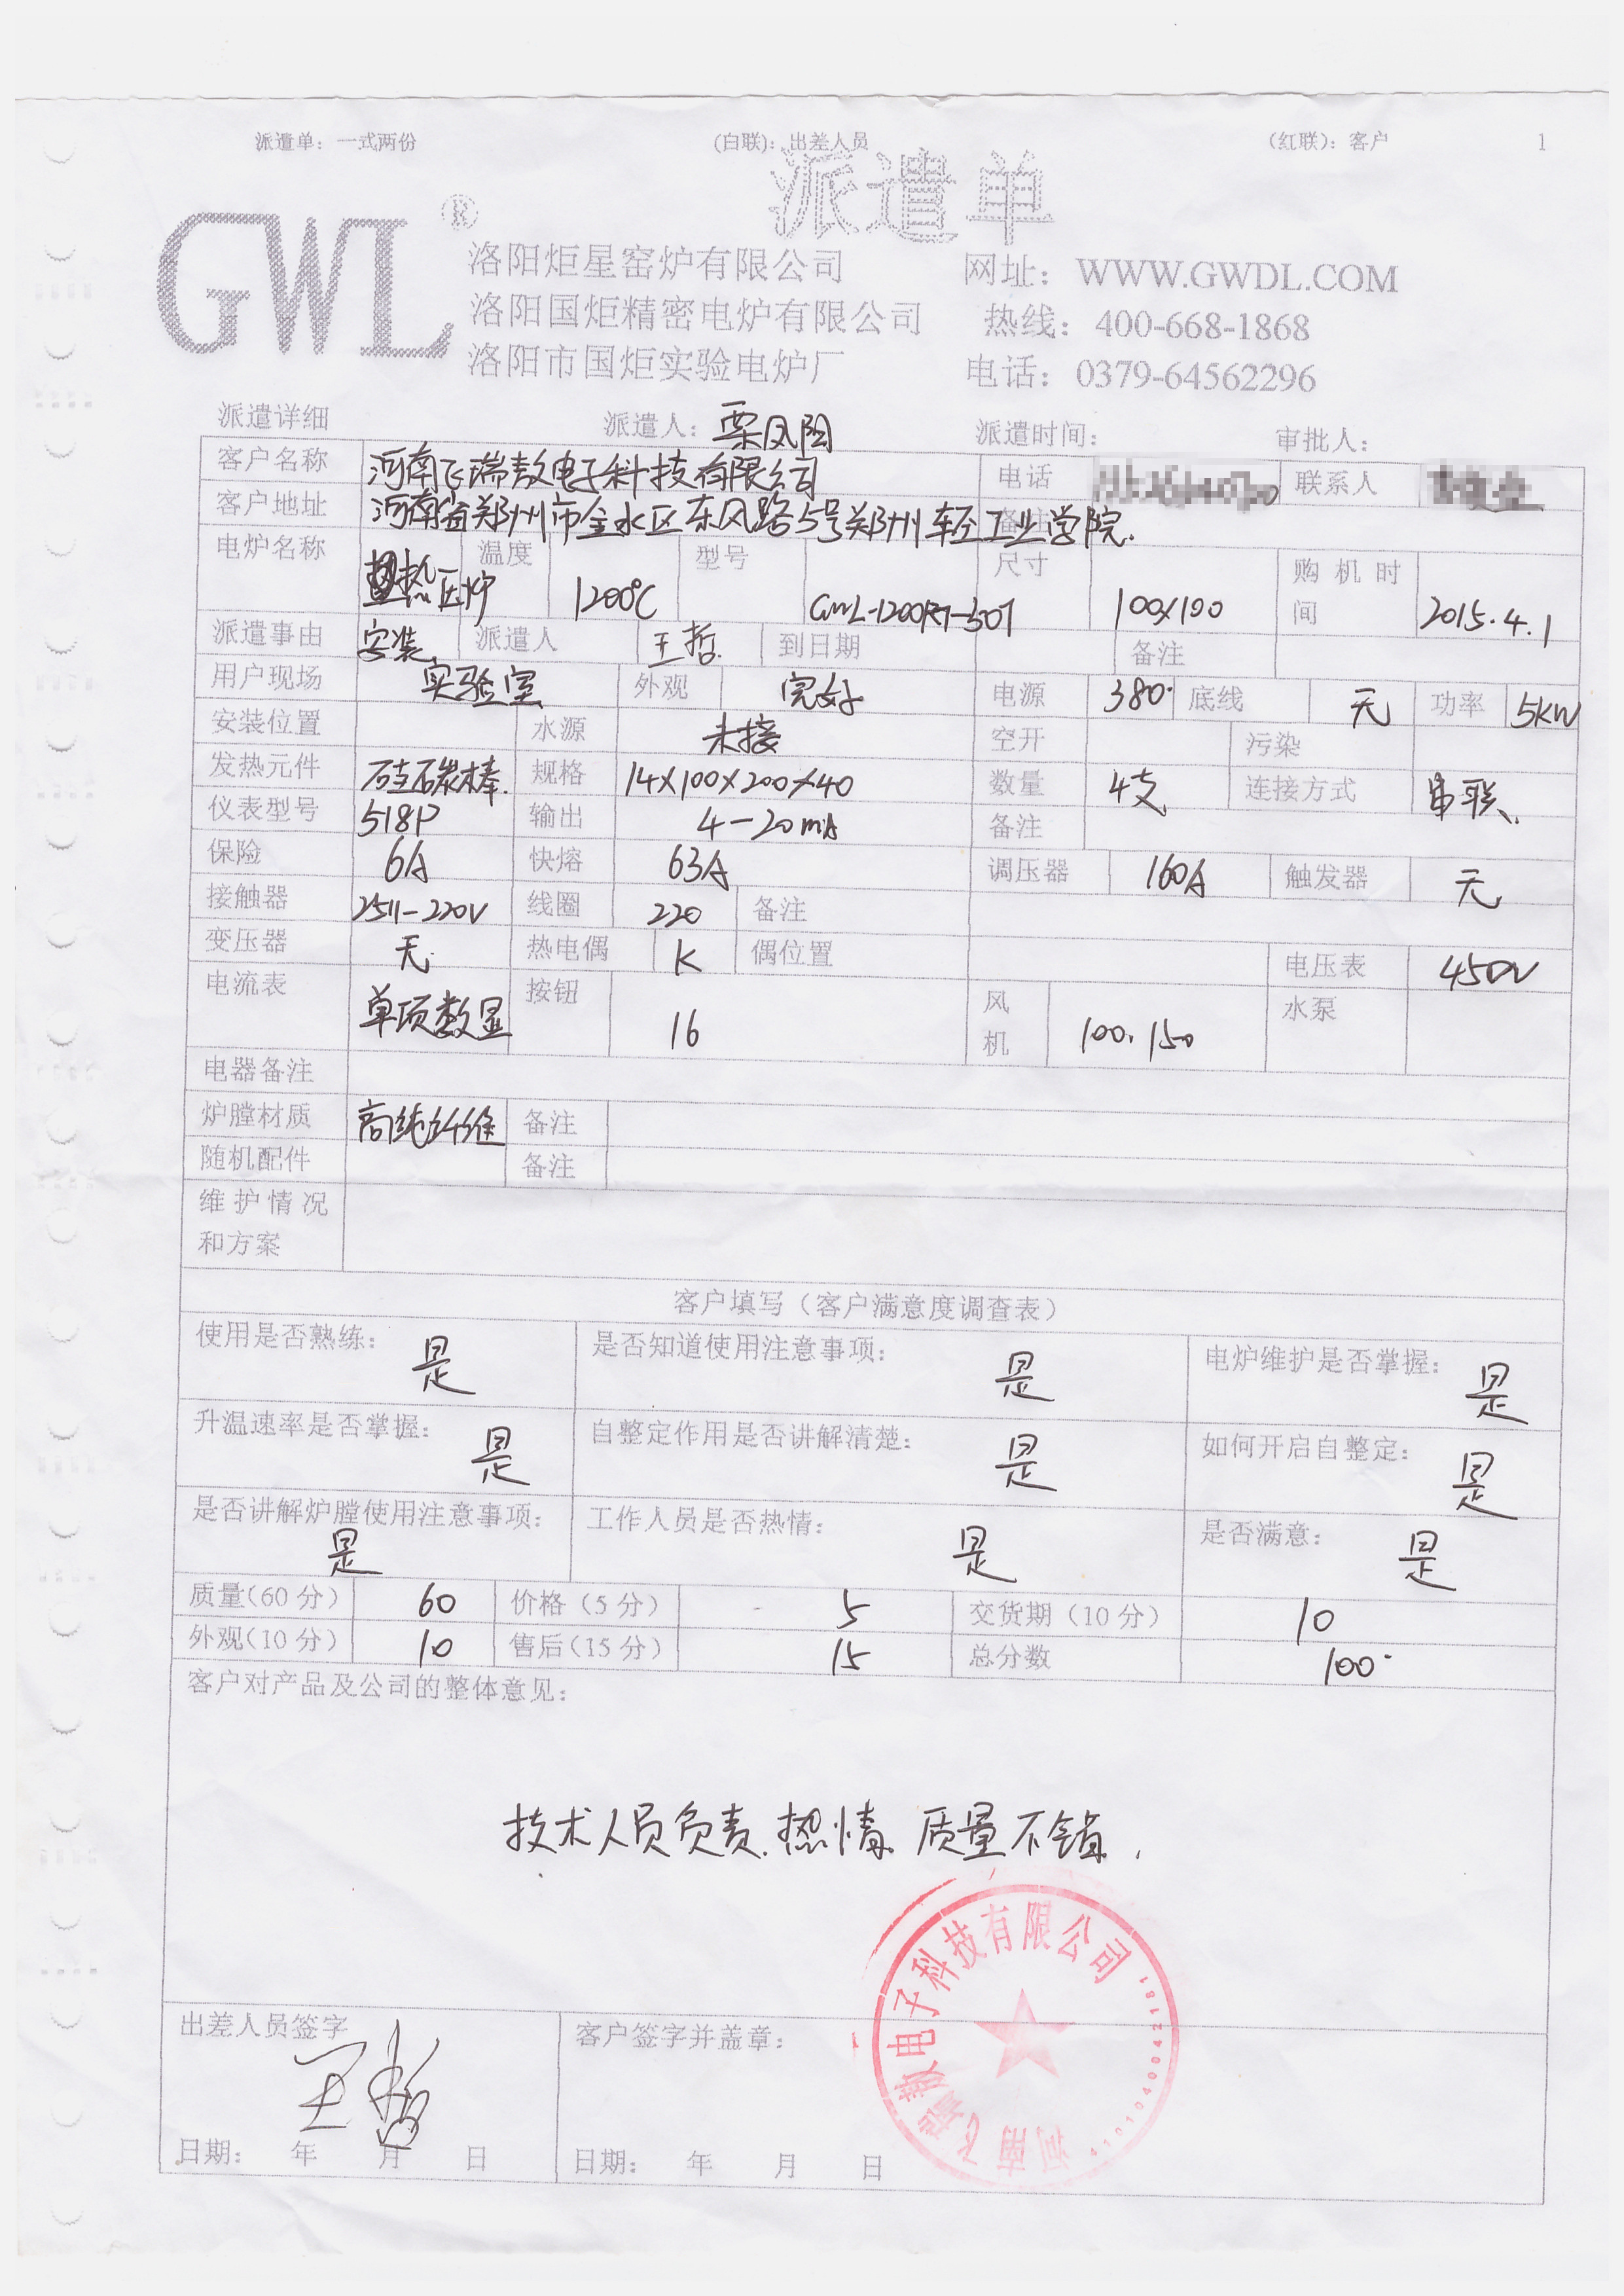 派遣单：一式两份 (白联)：出差人员 (红联)：客户 1
派遣单
GWL®
洛阳炬星窑炉有限公司 网址：WWW.GWDL.COM
洛阳国炬精密电炉有限公司 热线：400-668-1868
洛阳市国炬实验电炉厂 电话：0379-64562296
派遣详细 派遣人：栗凤阳 派遣时间： 审批人：
客户名称 河南飞瑞敖电子科技有限公司 电话 联系人
客户地址 河南省郑州市金水区东风路5号郑州轻工业学院. 备注
电炉名称 热压炉 温度 1200℃ 型号 GWL-1200RY-30T 尺寸 100×100 购机时间 2015.4.1
派遣事由 安装 派遣人 王哲 到日期 备注
用户现场 实验室 外观 完好 电源 380 底线 无 功率 5KW
安装位置 水源 未接 空开 污染
发热元件 硅碳棒 规格 14×100×200×40 数量 4支 连接方式 串联
仪表型号 518P 输出 4-20mA 备注
保险 6A 快熔 63A 调压器 160A 触发器 无
接触器 2511-220V 线圈 220 备注
变压器 无 热电偶 K 偶位置 电压表 450V
电流表 单项数显 按钮 16 风机 100.150 水泵
电器备注
炉膛材质 高纯纤维 备注
随机配件 备注
维护情况和方案
客户填写（客户满意度调查表）
使用是否熟练：是 是否知道使用注意事项：是 电炉维护是否掌握：是
升温速率是否掌握：是 自整定作用是否讲解清楚：是 如何开启自整定：是
是否讲解炉膛使用注意事项：是 工作人员是否热情：是 是否满意：是
质量(60分) 60 价格（5分） 5 交货期（10分） 10
外观(10分) 10 售后(15分) 15 总分数 100
客户对产品及公司的整体意见：
技术人员负责.热情.质量不错.
河南飞瑞敖电子科技有限公司
4101040042181
出差人员签字 王哲 客户签字并盖章：
日期： 年 月 日 日期： 年 月 日